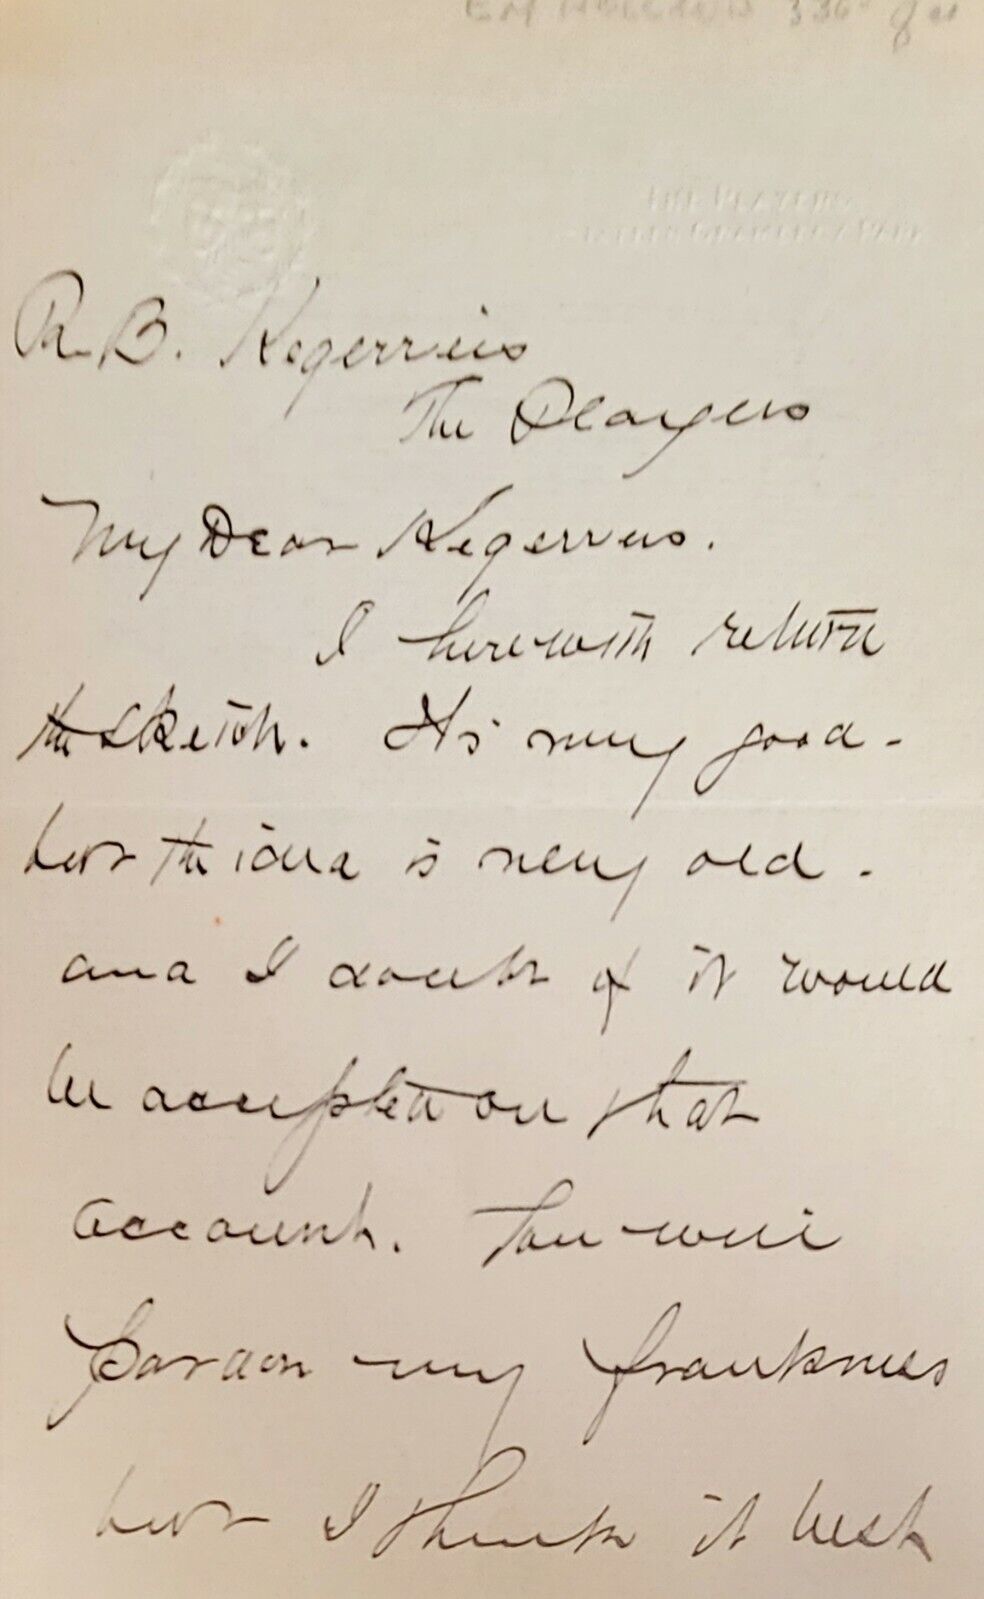 THE PLAYERS
GRAMERCY PARK
R. B. Kegerreis
The Players
My Dear Kegerreis.
I herewith return
the sketch. It's very good -
but the idea is very old -
and I doubt if it would
be accepted on that
account. You will
pardon my frankness
but I think it best